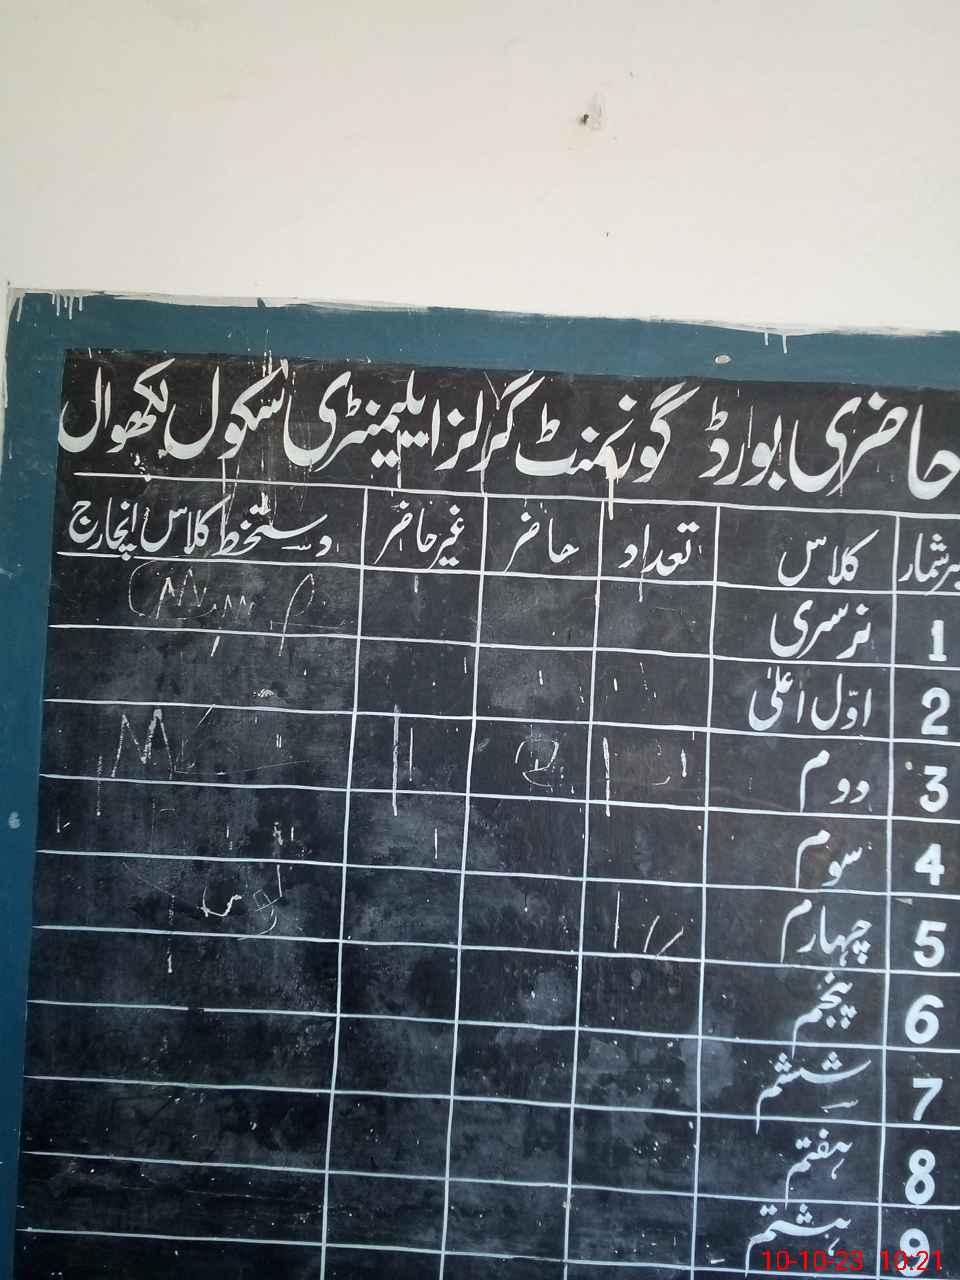 حاضری بورڈ گورنمنٹ گرلز ایلیمنٹری سکول لکھوال
کلاس تعداد حاضر غیر حاضر دستخط کلاس انچارج
1 نرسری
2 اوّل اعلیٰ
3 دوم
4 سوم
5 چہارم
6 پنجم
7 ششم
8 ہفتم
9 ہشتم
10-10-23 10:21